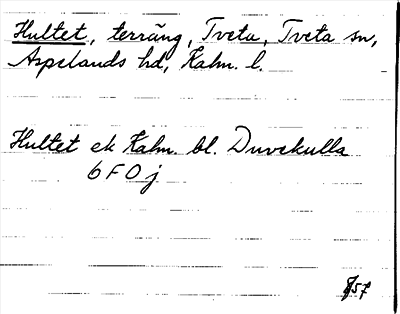 Hultet, terräng, Tveta, Tveta sn,
Aspelands hd, Kalm. l.
Hultet ek Kalm. bl. Duvekulla
6 F 0 j